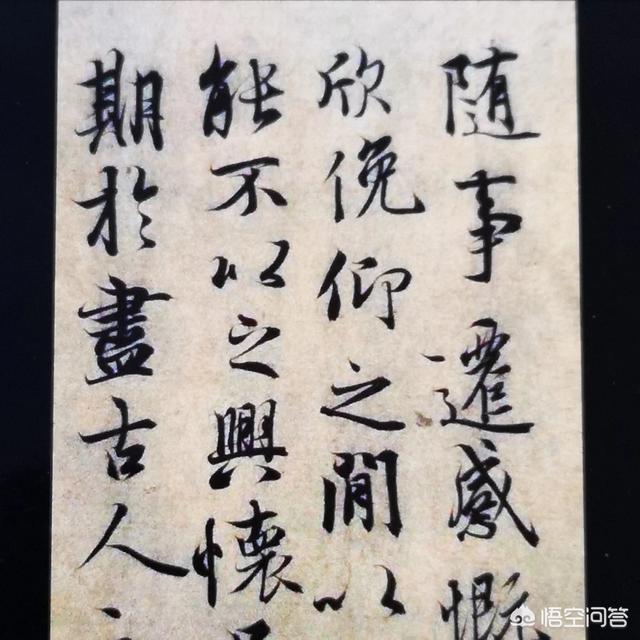 随事遷感慨
欣俛仰之閒以
能不以之興懷
期於盡古人
悟空问答